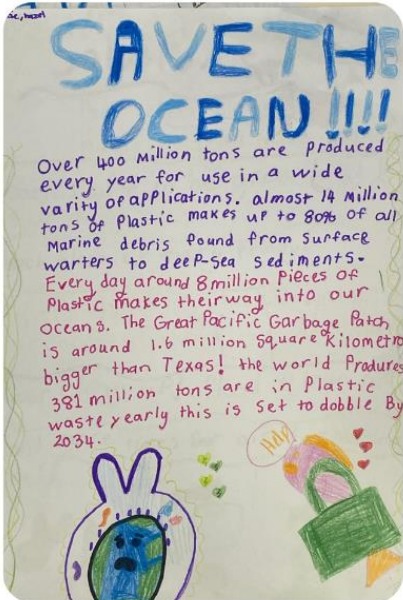 SAVE THE
OCEAN!!!!
Over 400 Million tons are produced
every year for use in a wide
varity of applications. almost 14 Million
tons of Plastic makes up to 80% of all
Marine debris found from Surface
warters to deep-sea sediments.
Every day around 8 million Pieces of
Plastic makes their way into our
Oceans. The Great Pacific Garbage Patch
is around 1.6 million Square Kilometre
bigger than Texas! the world Produres
381 million tons are in Plastic
waste yearly this is set to dobble By
2034.